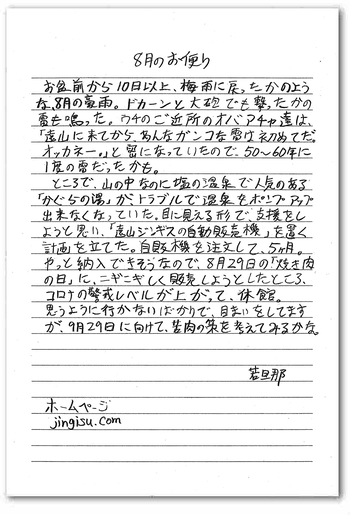 8月のお便り
お盆前から10日以上、梅雨に戻ったかのよう
な、8月の豪雨。ドカーンと大砲でも撃ったかの
雷も鳴った。ウチのご近所のオバアチャ達は、
「遠山に来てから、あんなガンコな雷は初めてだ。
オッカネー。」と噂になっていたので、50〜60年に
1度の雷だったかも。
ところで、山の中なのに塩の温泉で人気のある
「かぐらの湯」が、トラブルで温泉をポンプアップ
出来なくなっていた。目に見える形で、支援をし
ようと思い、「遠山ジンギスの自動販売機」を置く
計画を立てた。自販機を注文して、5ヶ月。
やっと納入できそうなので、8月29日の「焼き肉
の日」に、ニギニギしく販売しようとしたところ、
コロナの警戒レベルが上がって、休館。
思うように行かないばかりで、目まいをしてます
が、9月29日に向けて、苦肉の策を考えてみるかな。
若旦那
ホームページ
jingisu.com